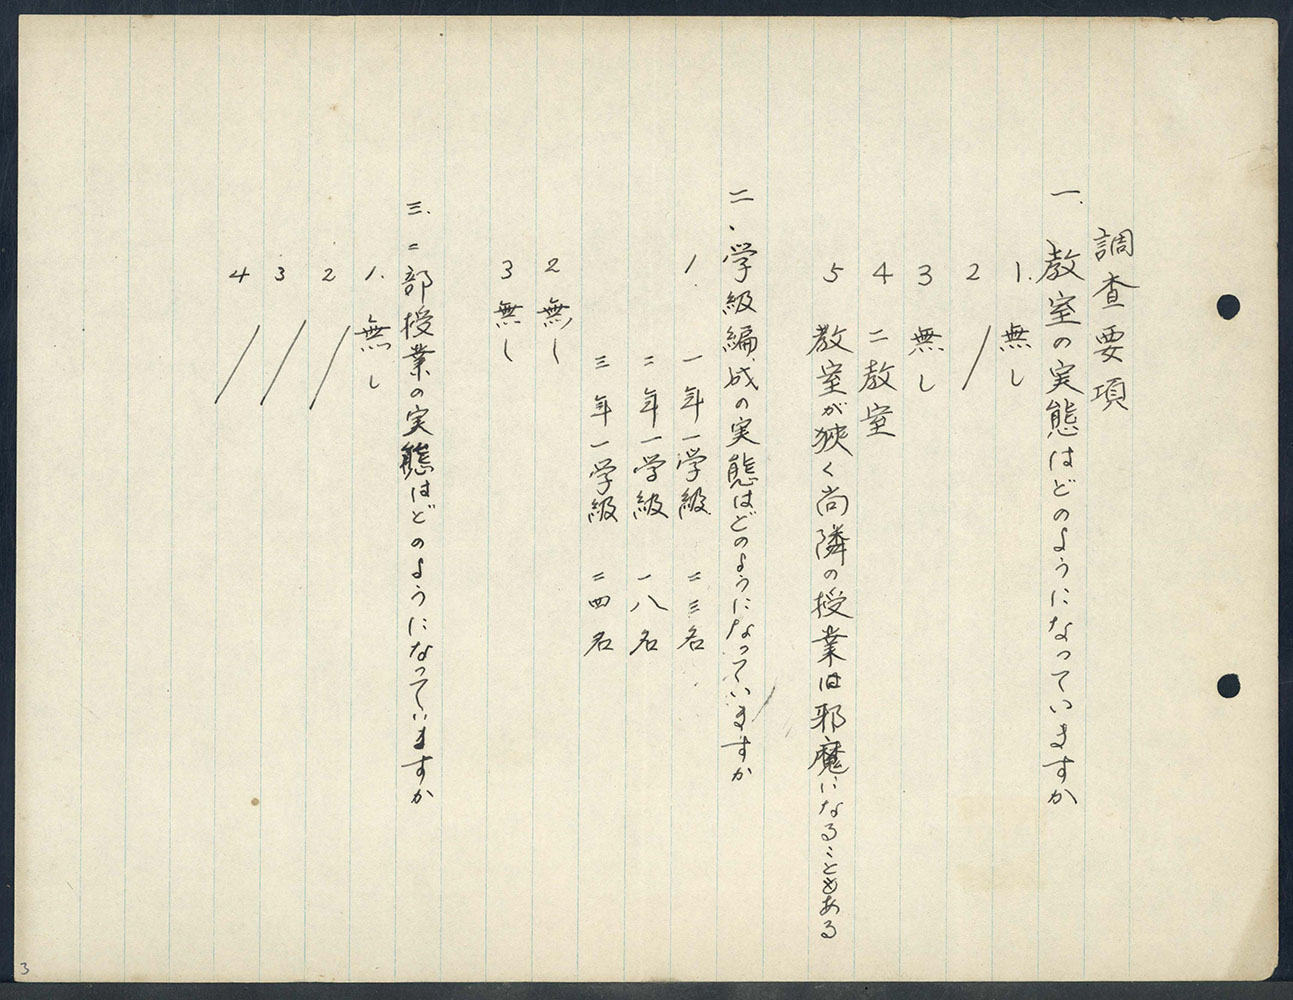 調査要項
一、教室の実態はどのようになっていますか
1. 無し
2 /
3 無し
4 二教室
5 教室が狭く尚隣の授業は邪魔になることもある
二、学級編成の実態はどのようになっていますか
1. 一年一学級 二三名
二年一学級 一八名
三年一学級 二四名
2 無し
3 無し
三、二部授業の実態はどのようになっていますか
1. 無し
2 /
3 /
4 /
3